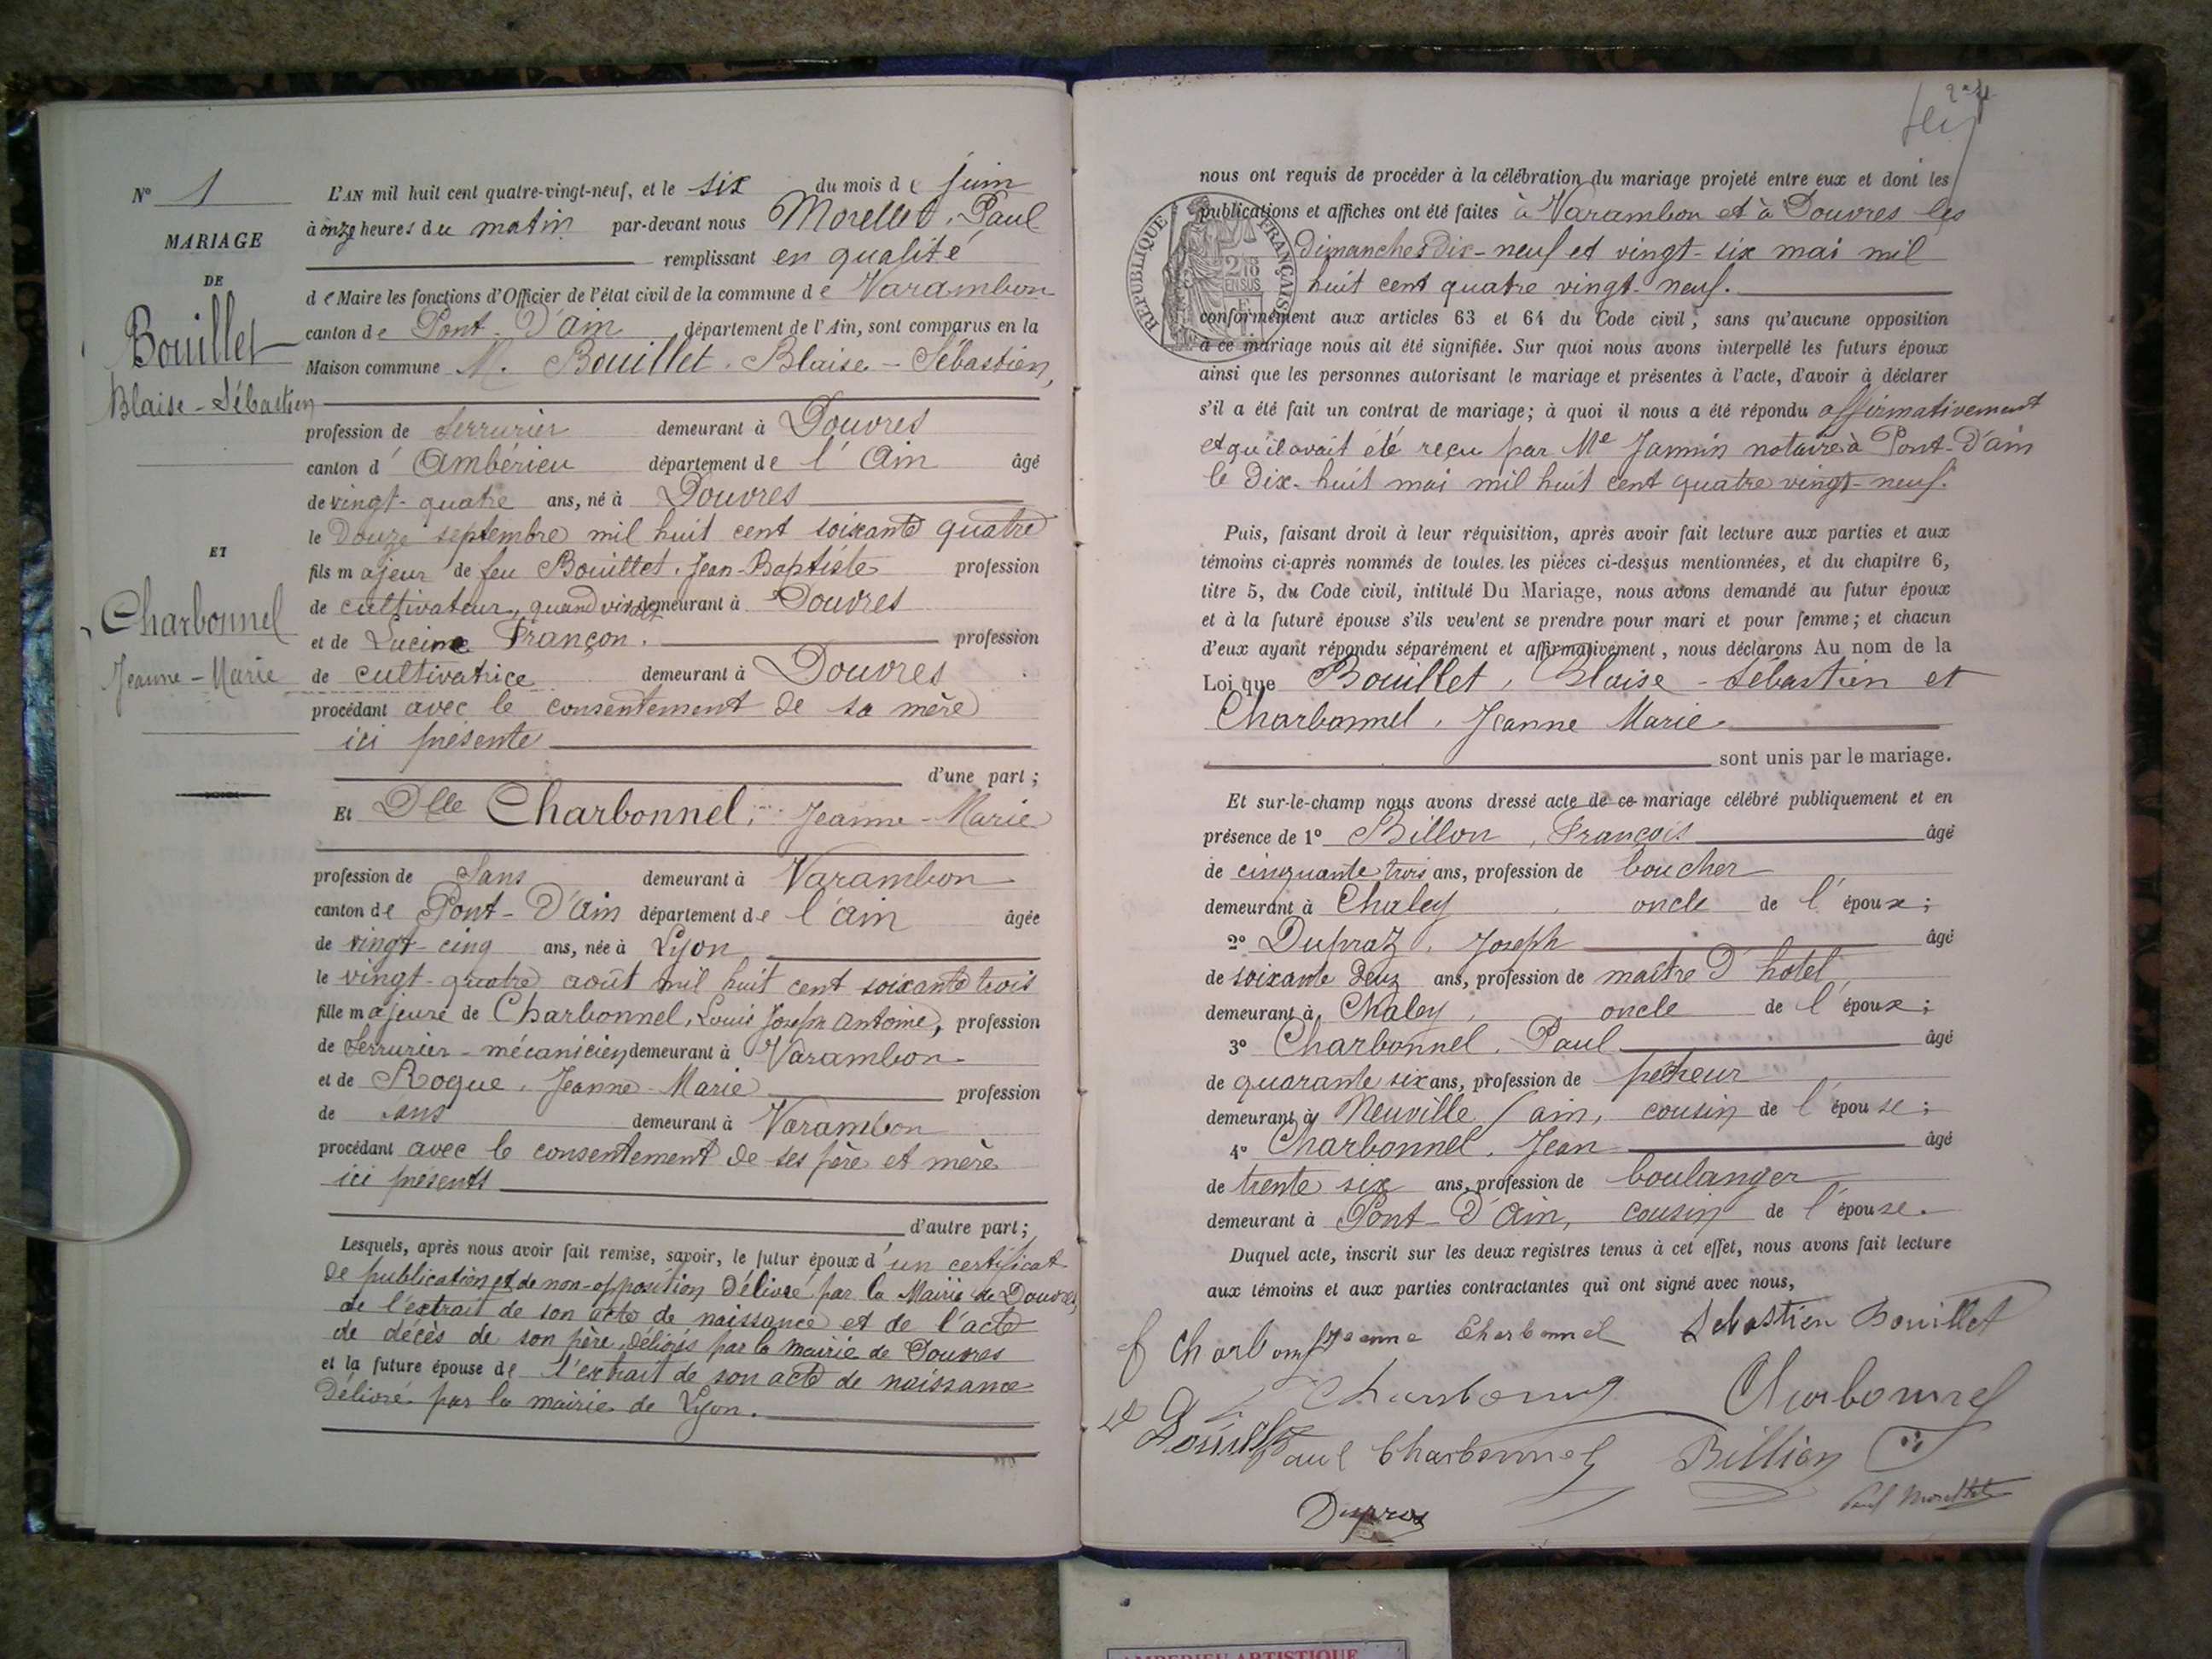 N° 1
MARIAGE
DE
Bouillet
Blaise-Sébastien
ET
Charbonnel
Jeanne-Marie
L'AN mil huit cent quatre-vingt-neuf, et le six du mois de juin
à onze heures du matin par-devant nous Morellet, Paul
remplissant en qualité
de Maire les fonctions d'Officier de l'état civil de la commune de Varambon
canton de Pont-D'ain, département de l'Ain, sont comparus en la
Maison commune M. Bouillet, Blaise-Sébastien,
profession de Serrurier demeurant à Douvres
canton d'Ambérieu département de l'Ain âgé
de vingt-quatre ans, né à Douvres
le Douze septembre mil huit cent soixante quatre
fils majeur de feu Bouillet, Jean-Baptiste profession
de cultivateur, quand vivait demeurant à Douvres
et de Lucine Françon. profession
de cultivatrice demeurant à Douvres
procédant avec le consentement de sa mère
ici présente
d'une part;
Et Dlle Charbonnel, Jeanne-Marie
profession de Sans demeurant à Varambon
canton de Pont-D'Ain département de l'ain âgée
de vingt-cinq ans, née à Lyon
le vingt-quatre août mil huit cent soixante trois
fille majeure de Charbonnel, Louis Joseph Antoine, profession
de Serrurier-mécanicien demeurant à Varambon.
et de Roque, Jeanne-Marie profession
de sans demeurant à Varambon
procédant avec le consentement de ses père et mère
ici présents
d'autre part;
Lesquels, après nous avoir fait remise, savoir, le futur époux d'un certificat
de publication et de non-opposition délivré par la Mairie de Douvres,
de l'extrait de son acte de naissance et de l'acte
de décès de son père, délivrés par la mairie de Douvres
et la future épouse de l'extrait de son acte de naissance
délivré par la mairie de Lyon.
nous ont requis de procéder à la célébration du mariage projeté entre eux et dont les
publications et affiches ont été faites à Varambon et à Douvres les
dimanches dix-neuf et vingt-six mai mil
huit cent quatre vingt-neuf.
REPUBLIQUE FRANÇAISE
conformément aux articles 63 et 64 du Code civil, sans qu'aucune opposition
à ce mariage nous ait été signifiée. Sur quoi nous avons interpellé les futurs époux
ainsi que les personnes autorisant le mariage et présentes à l'acte, d'avoir à déclarer
s'il a été fait un contrat de mariage; à quoi il nous a été répondu affirmativement
et qu'il avait été reçu par Me Jamin notaire à Pont-D'ain
le Dix-huit mai mil huit cent quatre vingt-neuf.
Puis, faisant droit à leur réquisition, après avoir fait lecture aux parties et aux
témoins ci-après nommés de toutes les pièces ci-dessus mentionnées, et du chapitre 6,
titre 5, du Code civil, intitulé Du Mariage, nous avons demandé au futur époux
et à la future épouse s'ils veulent se prendre pour mari et pour femme; et chacun
d'eux ayant répondu séparément et affirmativement, nous déclarons Au nom de la
Loi que Bouillet, Blaise-Sébastien et
Charbonnel, Jeanne Marie
sont unis par le mariage.
Et sur-le-champ nous avons dressé acte de ce mariage célébré publiquement et en
présence de 1° Billon, François âgé
de cinquante trois ans, profession de boucher
demeurant à Chaley, oncle de l'époux;
2° Dupraz, Joseph âgé
de soixante deux ans, profession de maître d'hôtel,
demeurant à Chaley, oncle de l'époux;
3° Charbonnel, Paul âgé
de quarante six ans, profession de pêcheur
demeurant à Neuville s/ain, cousin de l'épouse;
4° Charbonnel, Jean âgé
de trente six ans, profession de boulanger
demeurant à Pont-D'Ain, cousin de l'épouse.
Duquel acte, inscrit sur les deux registres tenus à cet effet, nous avons fait lecture
aux témoins et aux parties contractantes qui ont signé avec nous,
Jeanne Charbonnel Sebastien Bouillet
Charbonnel
Paul Charbonnel Billion
Paul Morellet
AMBERIEU ARTISTIQUE